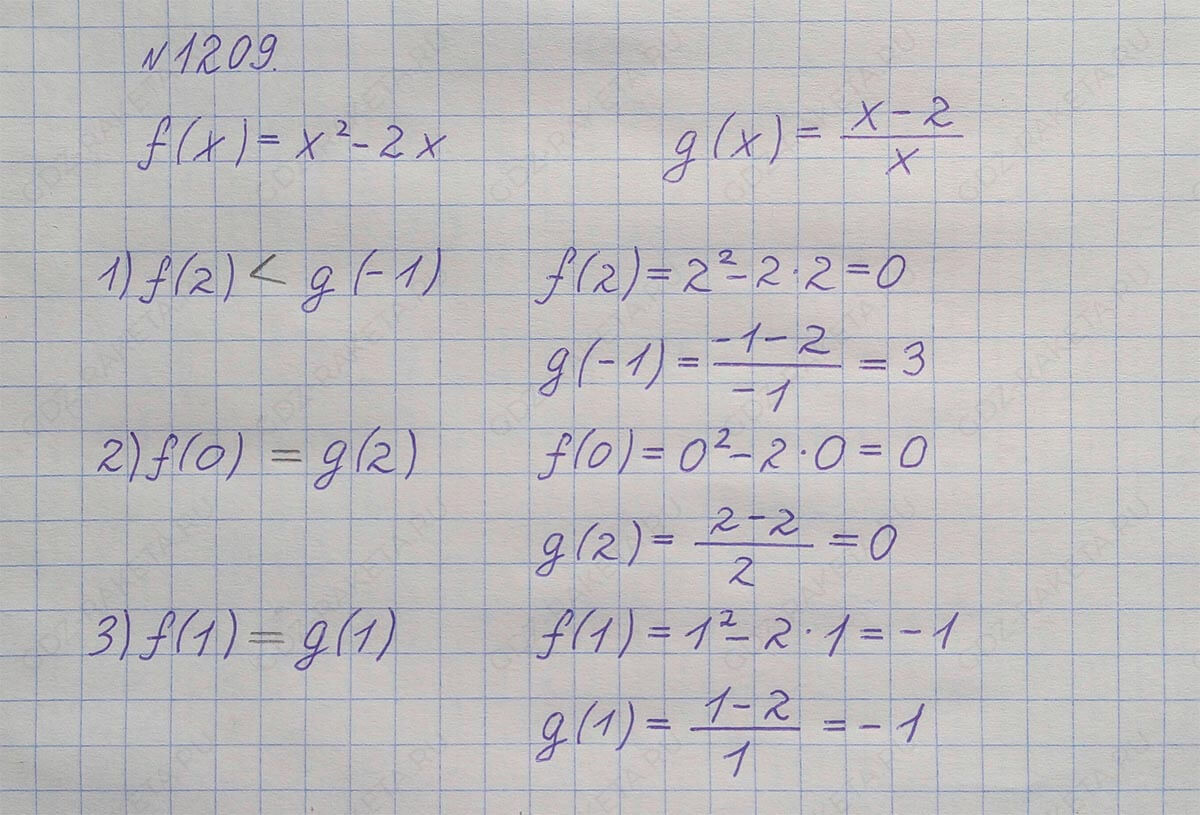 №1209.
f(x) = x² - 2x g(x) = (x - 2)/x
1) f(2) < g(-1) f(2) = 2² - 2·2 = 0
g(-1) = (-1 - 2)/(-1) = 3
2) f(0) = g(2) f(0) = 0² - 2·0 = 0
g(2) = (2 - 2)/2 = 0
3) f(1) = g(1) f(1) = 1² - 2·1 = -1
g(1) = (1 - 2)/1 = -1
GDZ-RAKETA.RU